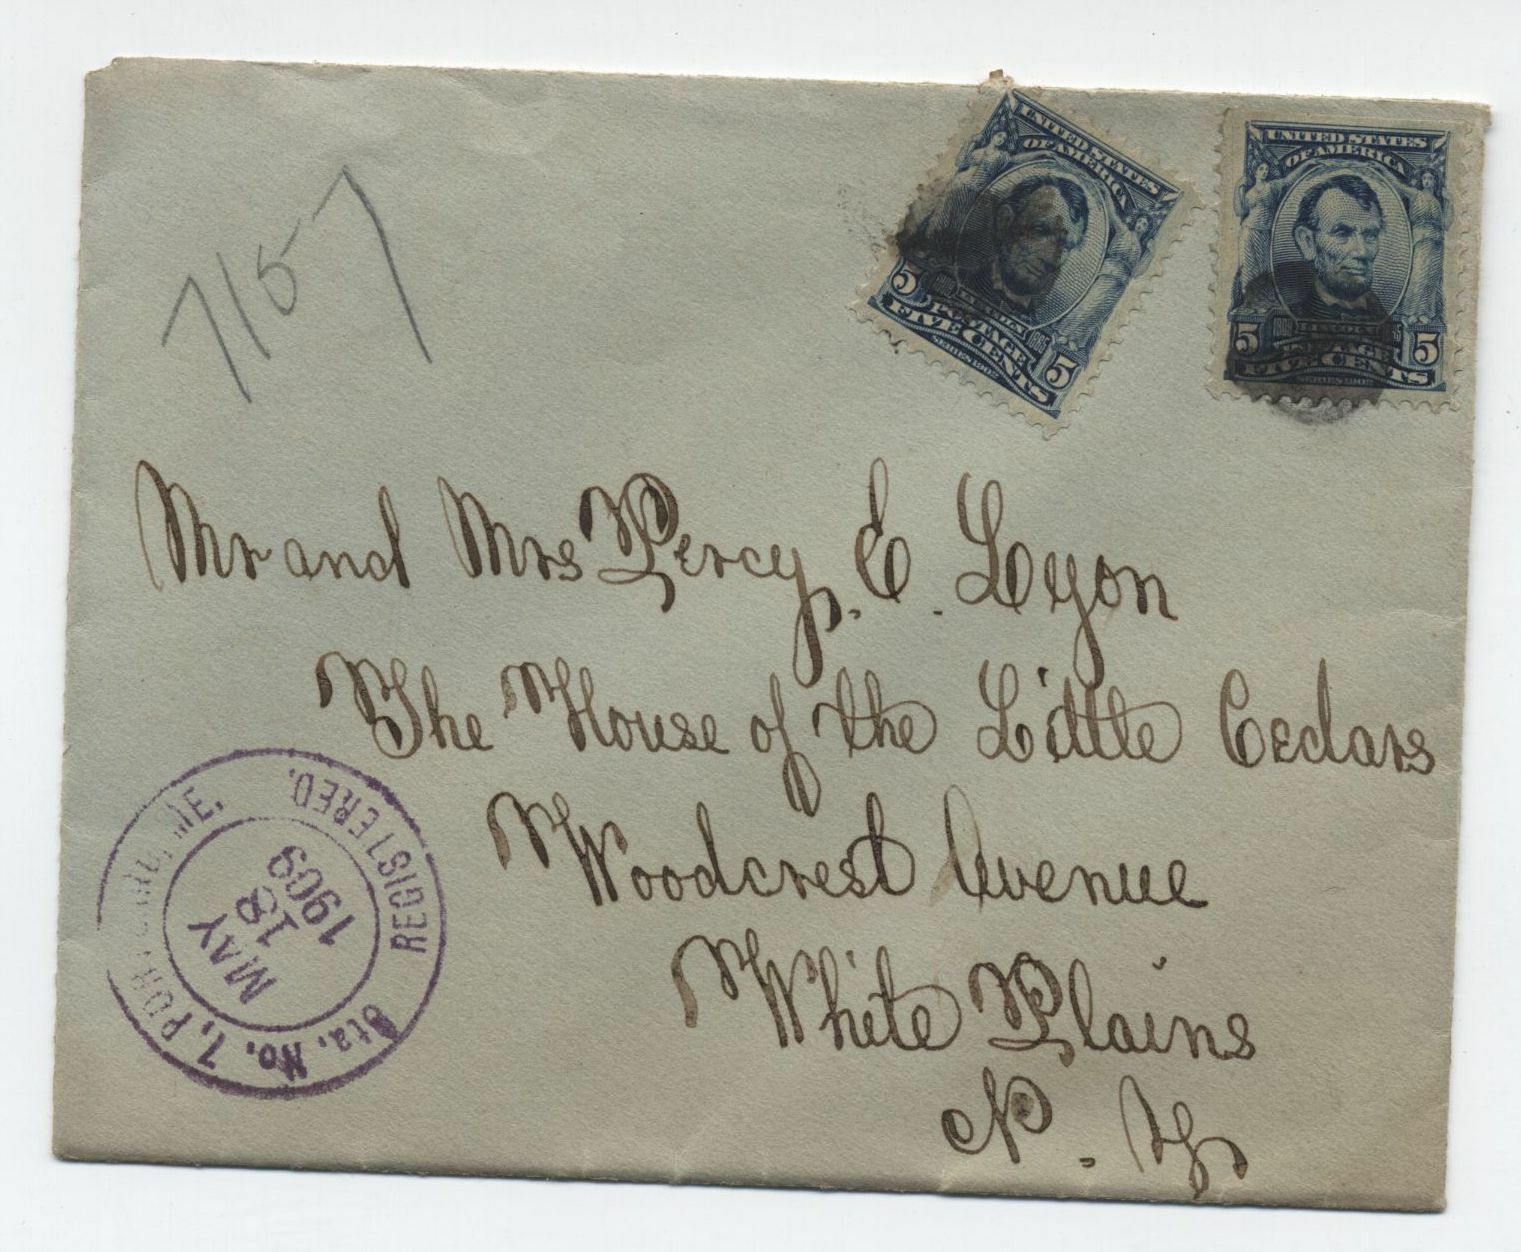 7157
UNITED STATES
OF AMERICA
5 5
POSTAGE
FIVE CENTS
SERIES 1902
UNITED STATES
OF AMERICA
1809 LINCOLN 1865
5 POSTAGE 5
FIVE CENTS
SERIES 1902
Mr and Mrs Percy. E. Lyon
The House of the Little Cedars
Woodcrest Avenue
White Plains
N. Y.
Sta. No. 1, PORTLAND, ME.
REGISTERED.
MAY
18
1909